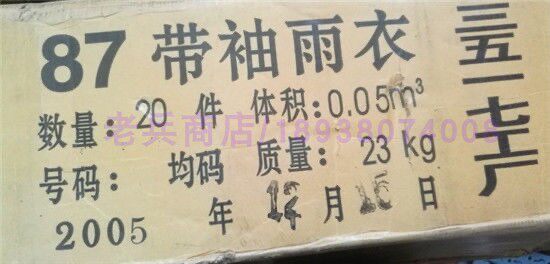 87 带袖雨衣
数量: 20 件 体积: 0.05m³
号码: 均码 质量: 23 kg
2005 年 12 月 16 日
三五一七工厂
老兵商店/18938074008